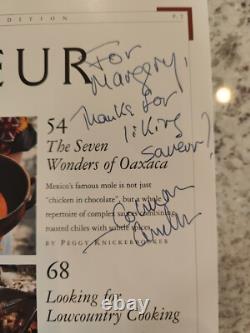 EDITION
P. 2
EUR
For
Margery,
Thanks for
liking
saveur!
54
The Seven
Wonders of Oaxaca
Mexico's famous mole is not just
"chicken in chocolate", but a whole
repertoire of complex sauces containing
roasted chiles with subtle spices.
BY PEGGY KNICKERBOCKER
68
Looking for
Lowcountry Cooking